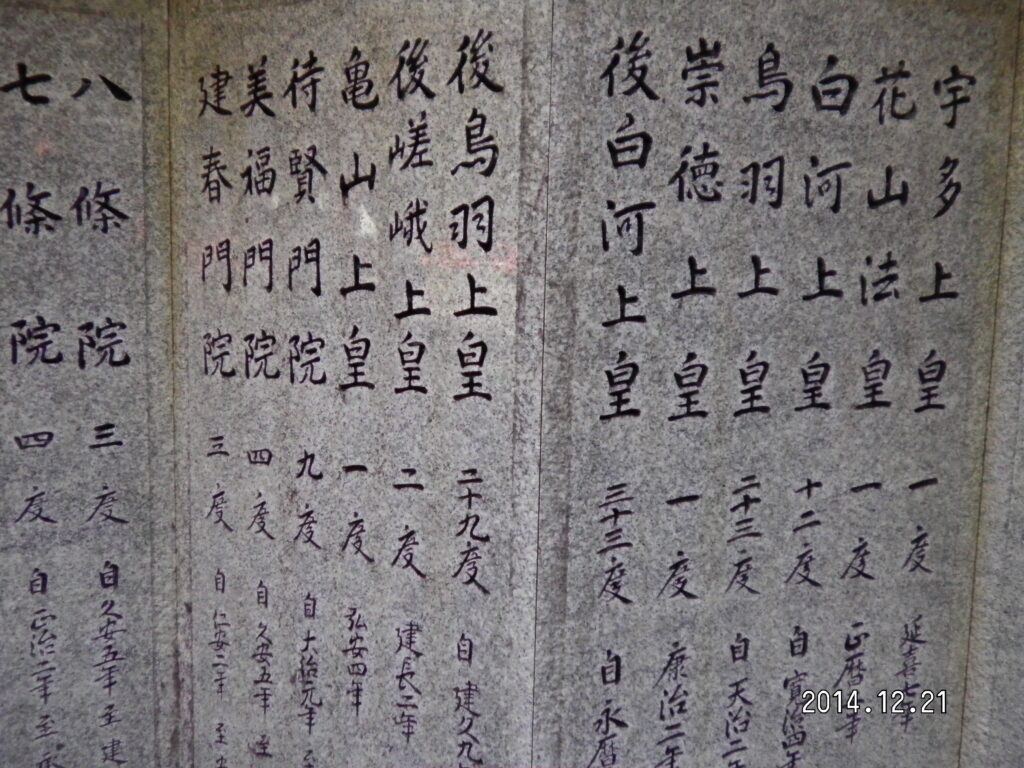 宇多上皇 一度 延喜七年
花山法皇 一度 正暦 年
白河上皇 十二度 自寛治四年
鳥羽上皇 二十三度 自天治二
崇徳上皇 一度 康治二年
後白河上皇 三十三度 自永暦
後鳥羽上皇 二十九度 自建久九
後嵯峨上皇 二度 建長二年
亀山上皇 一度 弘安四年
待賢門院 九度 自大治元年 至
美福門院 四度 自久安五年 至
建春門院 三度 自仁安二年 至
八條院 三度 自久安五年 至建
七條院 四度 自正治二年 至承
2014.12.21